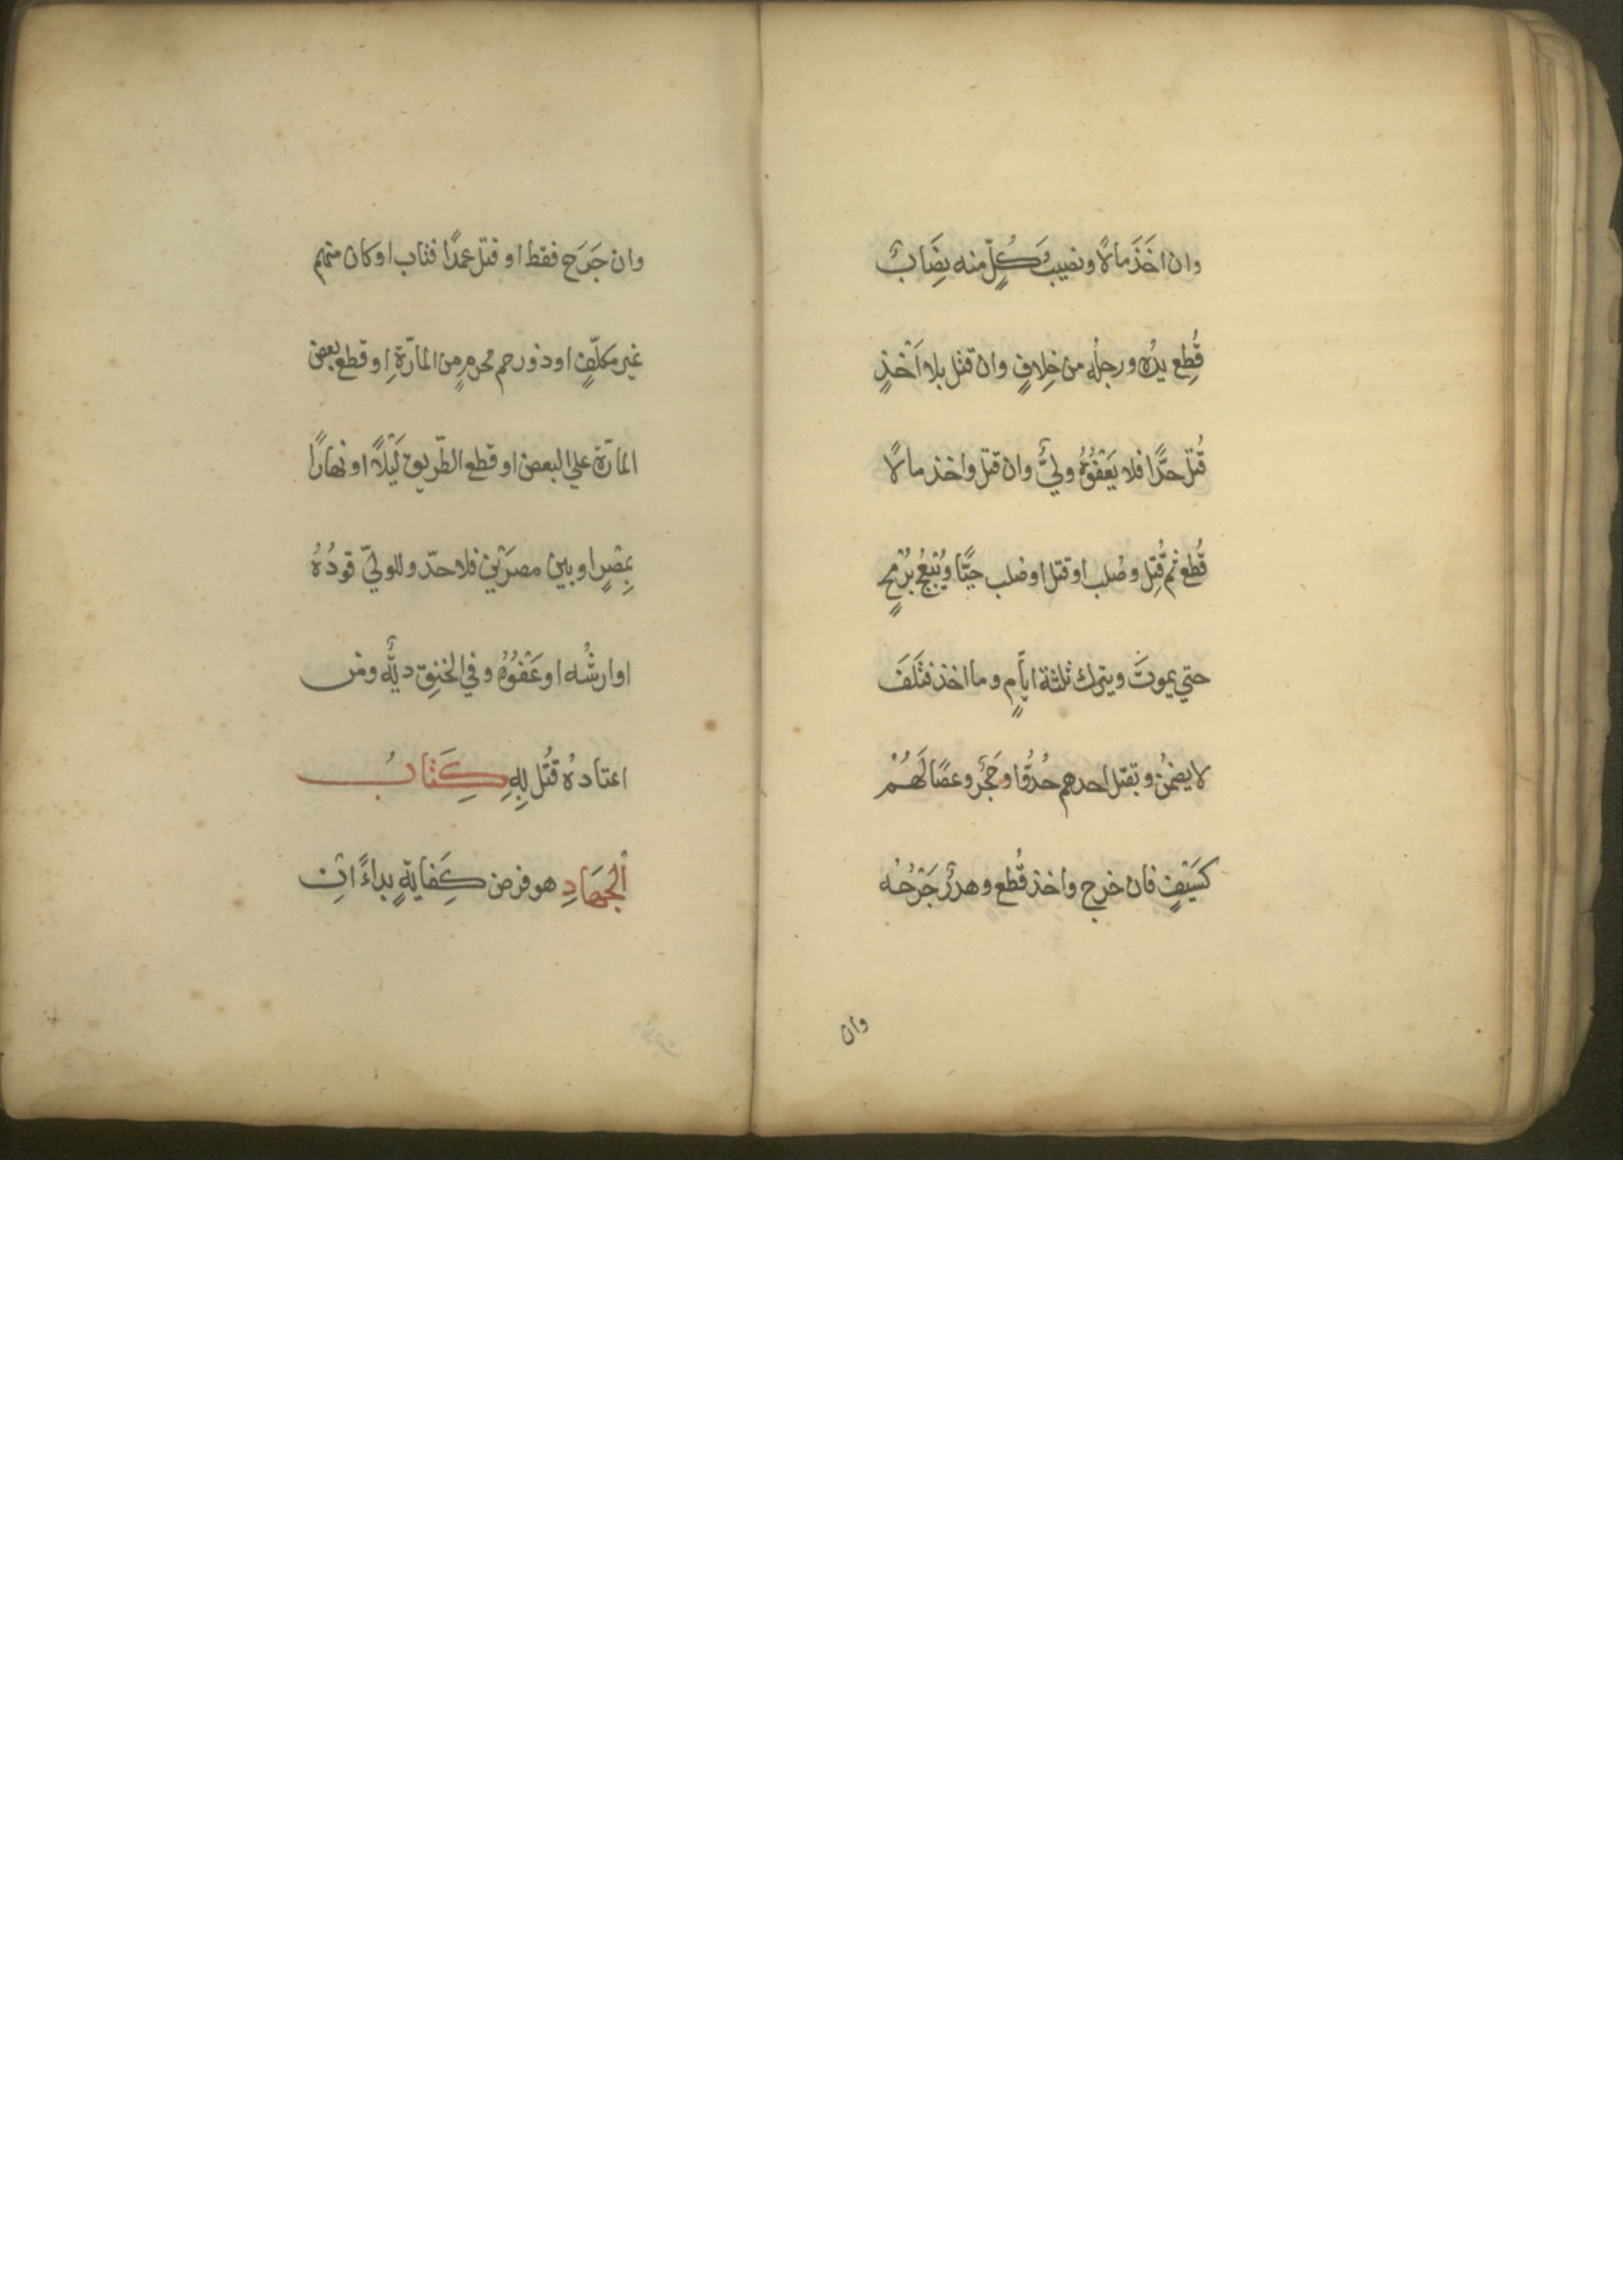 وان اخَذَ مالاً ونصيب كُلٍّ منه نِصَابٌ
قُطِع يدُه ورجلُه من خِلافٍ وان قتل بلا اَخْذٍ
قُتل حدًّا فلا يَعْفُوُهُ وليٌّ وان قتل واخذ مالاً
قُطع ثم قُتِل وصُلب او قتل او صُلب حيًّا ويُبْعَجُ بُرمْحٍ
حتي يموتَ ويترك ثلثة ايّامٍ وما اخذ فتَلَفَ
لا يضمنُ وبقتل احدهم حُدُّوا وحَجَرٌ وعصًا لَهُمْ
كسَيْفٍ فان خرج واخذ قُطع وهدرُ جَرْحُهُ
وان
وان جَرَح فقط او قتل عمدًا فتاب او كان منهم
غير مكلّفٍ او ذو رحم محرمٍ من المارّةِ او قطع بعض
المارّة علي البعض او قطع الطّريق لَيْلاً او نهارًا
بِمِصْرٍ او بين مصرَيْن فلا حدّ وللوليّ قودُهُ
او ارشُه او عَفْوُهُ وفي الخنِق ديتُه ومن
اعتادهُ قُتل بِهِ كِتَابُ
اَلْجِهَادِ هو فرض كِفايةٍ بداءً اِن